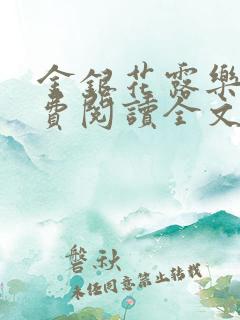 金銀花露樂
費閱讀全文
磬秋
未任同意禁止轉載